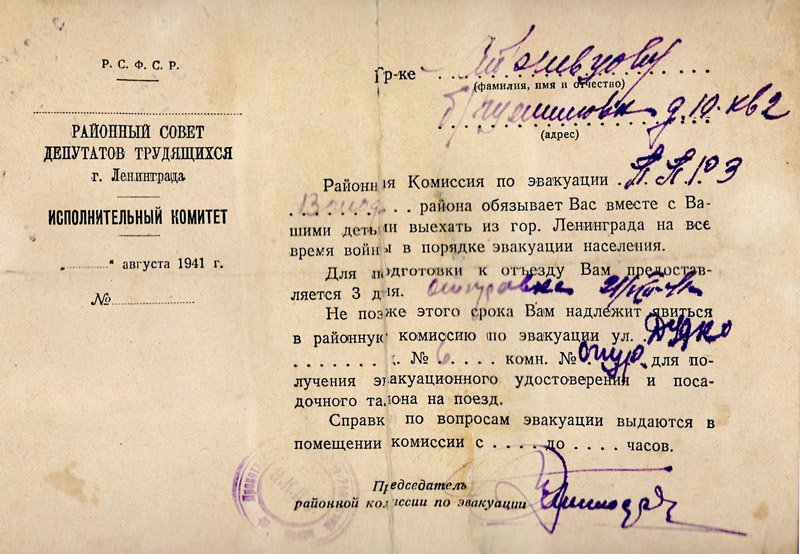 Р. С. Ф. С. Р.
РАЙОННЫЙ СОВЕТ
ДЕПУТАТОВ ТРУДЯЩИХСЯ
г. Ленинграда
ИСПОЛНИТЕЛЬНЫЙ КОМИТЕТ
„........“ августа 1941 г.
№
Гр-ке
(фамилия, имя и отчество)
д. 10. кв 2
(адрес)
Районная Комиссия по эвакуации
района обязывает Вас вместе с Ва-
шими детьми выехать из гор. Ленинграда на все
время войны в порядке эвакуации населения.
Для подготовки к отъезду Вам предостав-
ляется 3 дня.
Не позже этого срока Вам надлежит явиться
в районную комиссию по эвакуации ул.
к. № 6 комн. № для по-
лучения эвакуационного удостоверения и поса-
дочного талона на поезд.
Справки по вопросам эвакуации выдаются в
помещении комиссии с .... до .... часов.
Председатель
районной комиссии по эвакуации